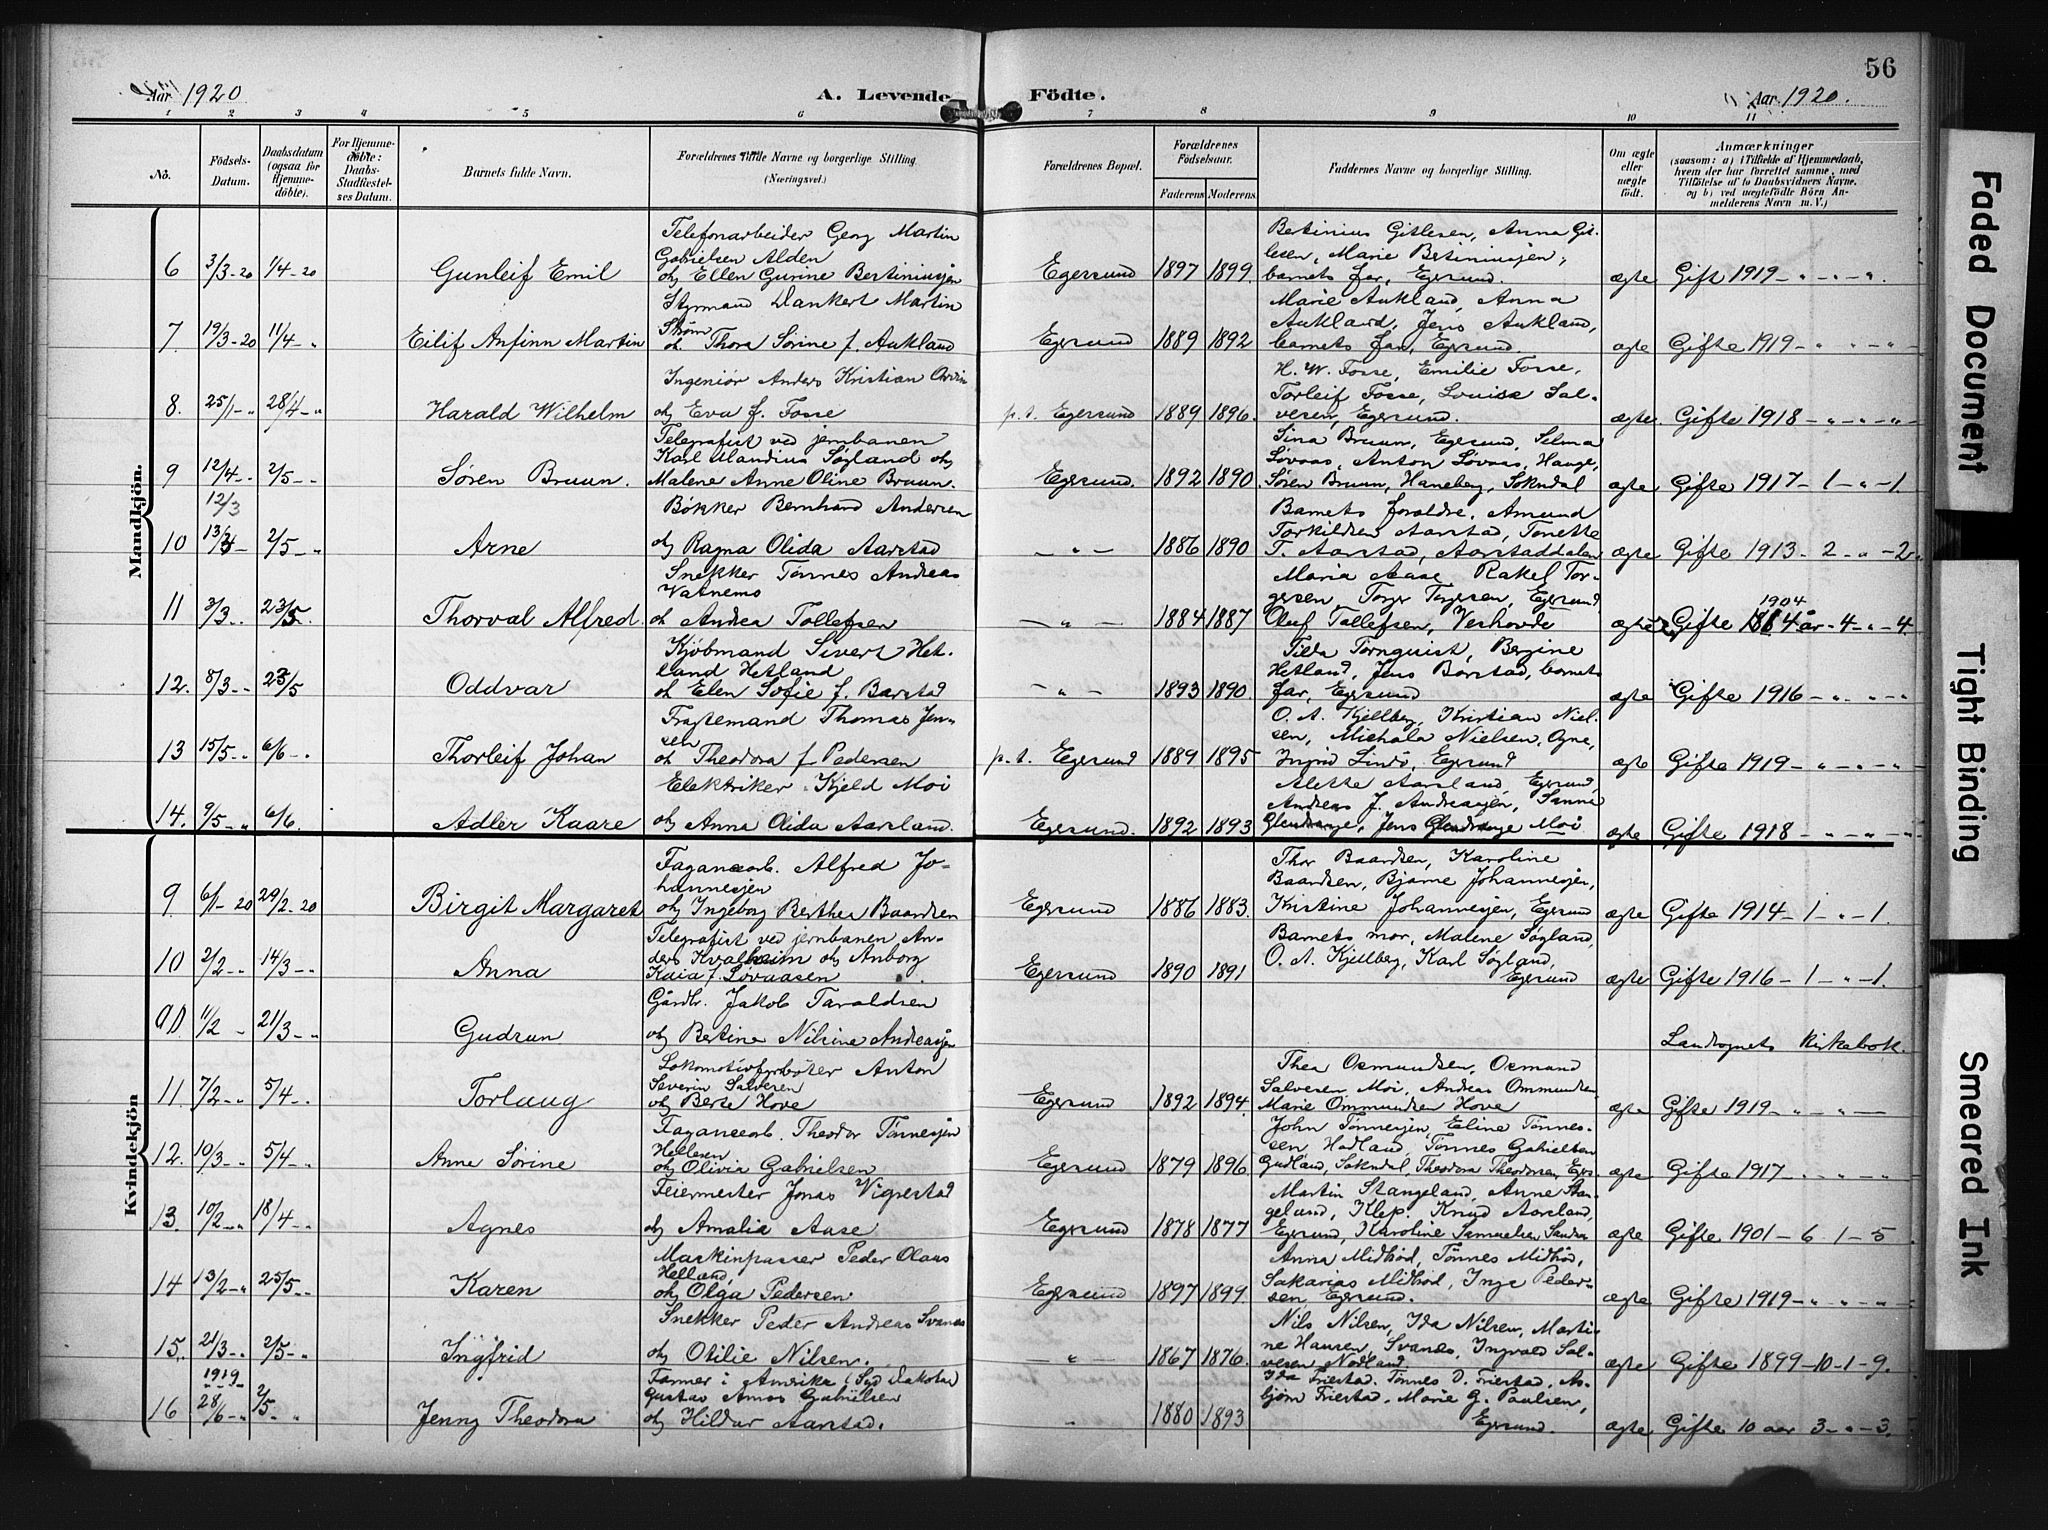 56
Aar 1920
A. Levende Födte.
Aar 1920.
1 2 3 4 5 6 7 8 9 10 11
No.
Födsels-Datum.
Daabsdatum (ogsaa for Hjemmedöbte).
For Hjemmedöbte: Daabs-Stadfæstelses Datum.
Barnets fulde Navn.
Forældrenes fulde Navne og borgerlige Stilling. (Næringsvei.)
Forældrenes Bopæl.
Forældrenes Födselsaar.
Faderens Moderens
Faddernes Navne og borgerlige Stilling.
Om ægte eller uægte födt.
Anmærkninger
(saasom: a) i Tilfælde af Hjemmedaab, hvem der har forrettet samme, med Tilföielse af to Daabsvidners Navne, og b) ved uægtefödte Börn Anmelderens Navn m. V.)
Mandkjön.
6 3/3-20 1/4-20 Gunleif Emil Telefonarbeider Georg Martin Gabrielsen Alden og Ellen Gurine Bertiniussen Egersund 1897 1899. Bertinius Gitlesen, Anna Gitlesen, Marie Bertiniussen, barnets far, Egersund. ægte Gift 1919 - " - " - ".
7. 19/3-20 11/4 - " Eilif Anfinn Martin Styrmand Dankert Martin Strøm og Thora Sørine f. Aukland Egersund 1889 1892 Marie Aukland, Anna Aukland, Jens Aukland, barnets far, Egersund ægte Gifte 1919 - " " - " -
8. 25/1 - " 28/4 - " Harald Wilhelm Ingeniør Anders Kristian Orvin og Eva f. Fosse p.t. Egersund 1889 1896. H. W. Fosse, Emilie Fosse, Torleif Fosse, Louise Salvesen, Egersund. ægte. Gifte 1918 - " - " - " -
9 12/4 - " 2/5 - " Søren Bruun. Telegrafist ved jernbanen Karl Mandius Søgland og Malene Anne Oline Bruun. Egersund. 1892 1890. Sina Bruun, Egersund, Selma Løvaas, Anton Løvaas, Hauge, Søren Bruun, Haneberg, Sokndal ægte Gifte 1917 - 1 - " - 1.
12/3
10 13/4 - 2/5 - " Arne Bøkker Bernhard Andersen og Ragna Olida Aarstad - " - 1886 1890 Barnets foraldre, Amund Torkildsen Aarstad, Tonette T. Aarstad, Aarstaddalen ægte Gifte 1913 - 2 - " - 2
11 3/3 - " 23/5. Thorval Alfred. Snekker Tønnes Andreas Vatnemo og Andrea Tollefsen - " - 1884 1887 Maria Aase, Rakel Torgersen, Torger Torgersen, Egersund Oluf Tollefsen, Veshovde ægte Gifte 1904 - 4 - " - 4.
12. 8/3 - " 23/5 Oddvar Kjøbmand Sivert Hetland Hetland og Elen Sofie f. Barstad - " - 1893 1890. Tilda Tornquist, Bergine Hetland, Jens Barstad, barnets far, Egersund ægte Gifte 1916 - " " - "
13 15/5 - " 6/6 - " Thorleif Johan Fragtemand Thomas Jensen og Theodora f. Pedersen p.t. Egersund 1889 1895 O. A. Kjellberg, Kristian Nielsen, Michala Nielsen, Ogne, Ingrid Lindø, Egersund ægte Gifte 1919 - " - " - "
14. 9/5 - " 6/6. Adler Kaare Elektriker Kjeld Moi og Anna Olida Aarsland. Egersund. 1892 1893 Alette Aarsland, Egersund, Andreas J. Andreassen, Sanna Glendrange, Jens Glendrange Moi ægte Gifte 1918 - " - " - "
Kvindekjön
9. 6/1-20 29/2-20 Birgit Margaret Faganсearb. Alfred Johannessen og Ingeborg Berthea Baardsen Egersund 1886 1883. Thor Baardsen, Karoline Baardsen, Bjarne Johannessen, Kristine Johannessen, Egersund ægte Gifte 1914 - 1 - " - 1.
10 2/2 - " 14/3 - " Anna Telegrafist ved jernbanen Anders Kvalheim og Anborg Kaia f. Løvaasen. Egersund 1890 1891 Barnets mor, Malene Søgland, O. A. Kjellberg, Karl Søgland, Egersund ægte Gifte 1916 - 1 - " - 1.
11/2 - 21/3 - " Gudrun Gårdbr. Jakob Taraldsen og Bertine Nilsine Andreassen Landsognets Kirkebok.
11. 7/2 - " 5/4 - " Torlaug Lokomotivfyrbøter Anton Severin Salvesen og Berte Hove Egersund 1892 1894. Thea Osmundsen, Osmund Salvesen Moi, Andreas Ommundsen Marie Ommundsen Hove ægte Gifte 1919 - " - " -
12. 10/3 - " 5/4 - " Anne Sørine Fagancearb. Theodor Tønnessen Hellesen og Olivia Gabrielsen Egersund 1879 1896. John Tønnessen, Eline Tønnessen Hadland, Tønnes Gabrielsen Gudland, Sokndal, Theodora Theodorsen, Egs. ægte Gifte 1917 - " - " - "
13. 10/2 - " 18/4 - " Agnes Feiermester Jonas Vigrestad og Amalia Aase Egersund 1878 1877 Martin Stangeland, Anne Stangeland, Klep, Knud Aarsland, Egersund, Karoline Samuelsen ægte Gifte 1901 - 6 1 - 5
14 13/2 - " 25/5 - " Karen Maskinpasser Peder Olaus Helland, og Olga Pedersen Egersund 1897 1899. Anna Midbød, Tønnes Midbød, Sakarias Midbød, Inge Pedersen Egersund. ægte Gifte 1919 - " " - "
15. 21/3 - " 2/5 - " Ingfrid Snekker Peder Andreas Svanes og Otilie Nilsen. - " - 1867 1876. Nils Nilsen, Ida Nilsen, Martine Hansen, Svanes, Ingvald Salvesen Nodland ægte Gifte 1899 - 10 - 1 - 9.
1919
16 28/6 - " 2/5. " Jenny Theodora Farmer i Amerika (Syd Dakota) Gustav Amos Gabrielsen og Hildur Aarstad. " 1880 1893 Ida Friestad, Tønnes D. Friestad, Asbjørn Friestad, Marie G. Paulsen, Egersund. ægte Gifte 10 aar 3 - " - 3.
Faded Document
Tight Binding
Smeared Ink